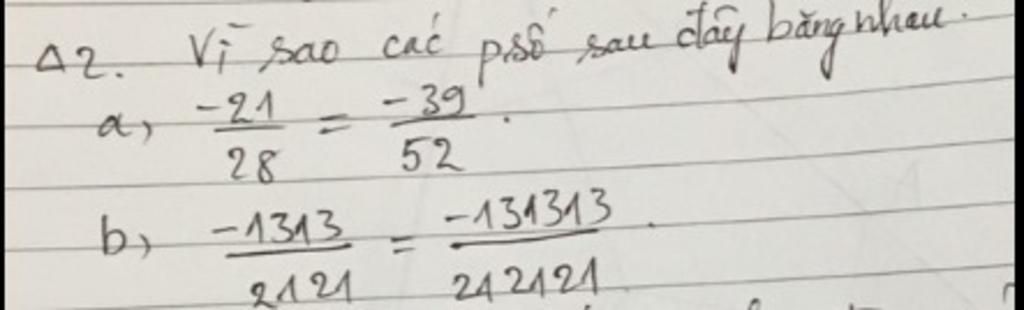 Δ2. Vì sao các p.số sau đây bằng nhau.
a, -21/28 = -39/52.
b, -1313/2121 = -131313/212121.